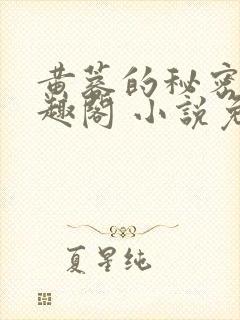 黄墓的秘密
趣閣 小說免
夏星纯